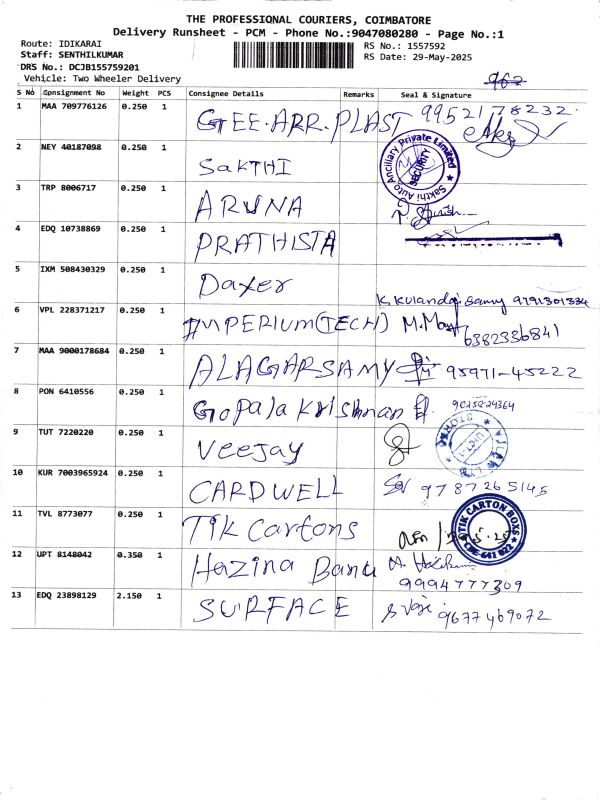 THE PROFESSIONAL COURIERS, COIMBATORE
Delivery Runsheet - PCM - Phone No.:9047080280 - Page No.:1
Route: IDIKARAI
RS No.: 1557592
Staff: SENTHILKUMAR
RS Date: 29-May-2025
DRS No.: DCJB155759201
Vehicle: Two Wheeler Delivery
962
S No Consignment No Weight PCS Consignee Details Remarks Seal & Signature
1 MAA 709776126 0.250 1 GEE.ARR.PLAST 9952178232
2 NEY 40187098 0.250 1 SAKTHI
Sakthi Auto Ancillary Private Limited
SECURITY
3 TRP 8006717 0.250 1 ARUNA
4 EDQ 10738869 0.250 1 PRATHISTA
5 IXM 508430329 0.250 1 Daxer
9791301334
6 VPL 228371217 0.250 1 IMPERIUM(TECH) 6382336841
7 MAA 9000178684 0.250 1 ALAGARSAMY 95971-45222
8 PON 6410556 0.250 1 Gopala Krishnan
9 TUT 7220220 0.250 1 Veejay
10 KUR 7003965924 0.250 1 CARDWELL 9787265145
11 TVL 8773077 0.250 1 TIK Cartons
TIK CARTON BOXS
CBE-641 022
12 UPT 8148042 0.350 1 Hazina Banu
9994777309
13 EDQ 23898129 2.150 1 SURFACE 9677469072